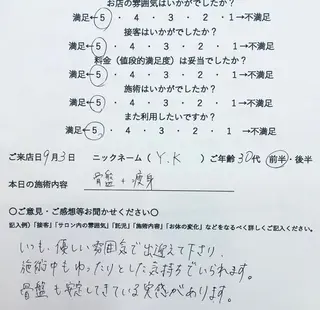 お店の雰囲気はいかがでしたか?
満足←5 ・ 4 ・ 3 ・ 2 ・ 1→不満足
接客はいかがでしたか?
満足←5 ・ 4 ・ 3 ・ 2 ・ 1→不満足
料金(値段的満足度)は妥当でしたか?
満足←5 ・ 4 ・ 3 ・ 2 ・ 1→不満足
施術はいかがでしたか?
満足←5 ・ 4 ・ 3 ・ 2 ・ 1→不満足
また利用したいですか?
満足←5 ・ 4 ・ 3 ・ 2 ・ 1→不満足
ご来店日9月3日 ニックネーム( Y.K )ご年齢30代 前半・後半
本日の施術内容 骨盤+痩身
〇ご意見・ご感想等お聞かせください。
記入例)「接客」「サロン内の雰囲気」「託児」「施術内容」「お体の変化」などをなるべく詳しくご記入ください。
いつも、優しい雰囲気で出迎えて下さり、
施術中もゆったりとした気持ちでいられます。
骨盤も安定してきている実感があります。